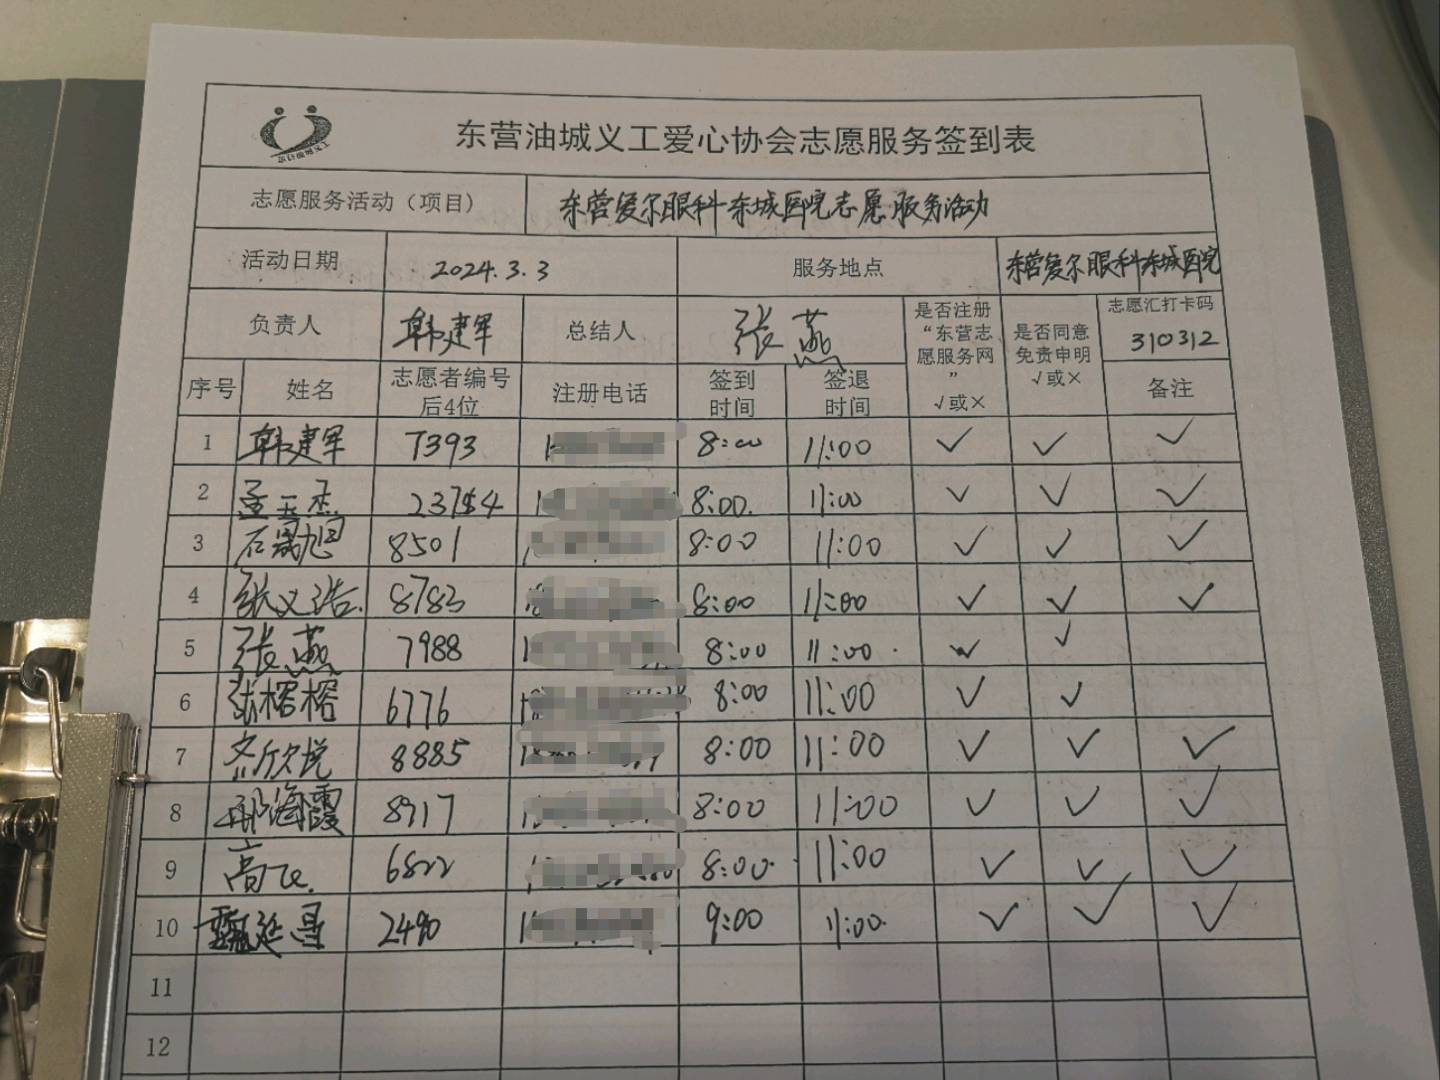 东营油城义工爱心协会志愿服务签到表
志愿服务活动（项目） 东营爱尔眼科东城医院志愿服务活动
活动日期 2024.3.3 服务地点 东营爱尔眼科东城医院
负责人 韩建军 总结人 张燕 是否注册“东营志愿服务网” √或× 是否同意免责申明 √或× 志愿汇打卡码 310312
序号 姓名 志愿者编号后4位 注册电话 签到时间 签退时间 备注
1 韩建军 7393 8:00 11:00 √ √ √
2 孟玉杰 8:00. 11:00 √ √ √
3 石晟旭 8501 8:00 11:00 √ √ √
4 张义浩. 8783 8:00 11:00 √ √ √
5 张燕 7988 8:00 11:00 √ √
6 张榕榕 6776 8:00 11:00 √ √
7 欣悦 8885 8:00 11:00 √ √ √
8 海霞 8917 8:00 11:00 √ √ √
9 高飞. 6822 8:00 11:00 √ √ √
10 延昌 2490 9:00 11:00 √ √ √
11
12